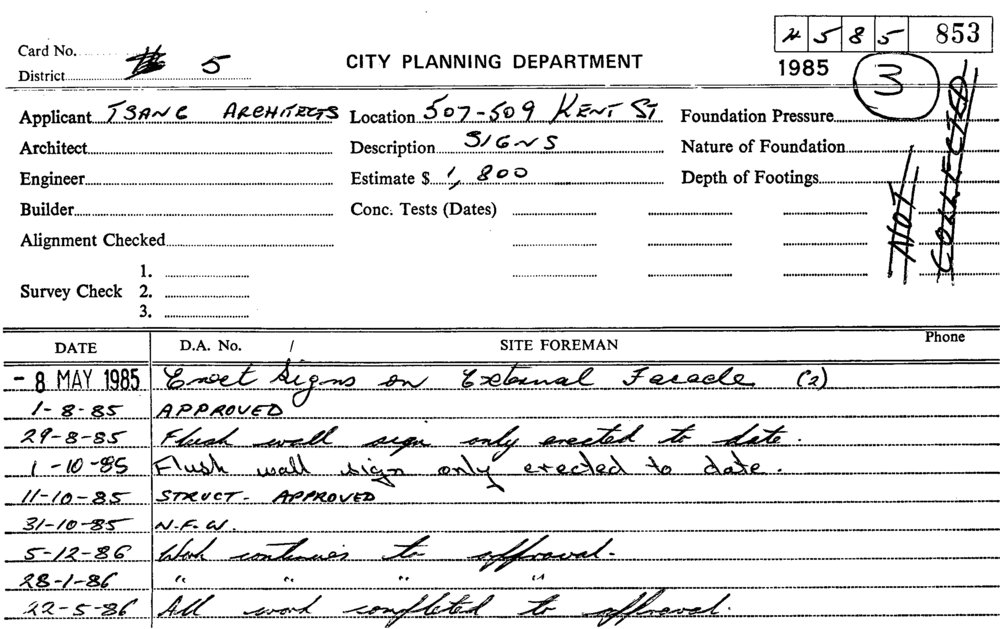 Card No.
4 5 8 5 853
District # 5
CITY PLANNING DEPARTMENT
1985
3
Applicant TSANG ARCHITECTS
Location 507-509 KENT ST
Foundation Pressure
Architect
Description SIGNS
Nature of Foundation
Engineer
Estimate $ 1,800
Depth of Footings
Builder
Conc. Tests (Dates)
NOT
COLLECTED
Alignment Checked
1.
Survey Check 2.
3.
DATE D.A. No. / SITE FOREMAN Phone
- 8 MAY 1985 Erect Signs on External Facade (2)
1-8-85 APPROVED
29-8-85 Flush wall sign only erected to date.
1-10-85 Flush wall sign only erected to date.
11-10-85 STRUCT- APPROVED
31-10-85 N.F.W.
5-12-86 Work continues to approval.
28-1-86 " " " "
22-5-86 All work completed to approval.